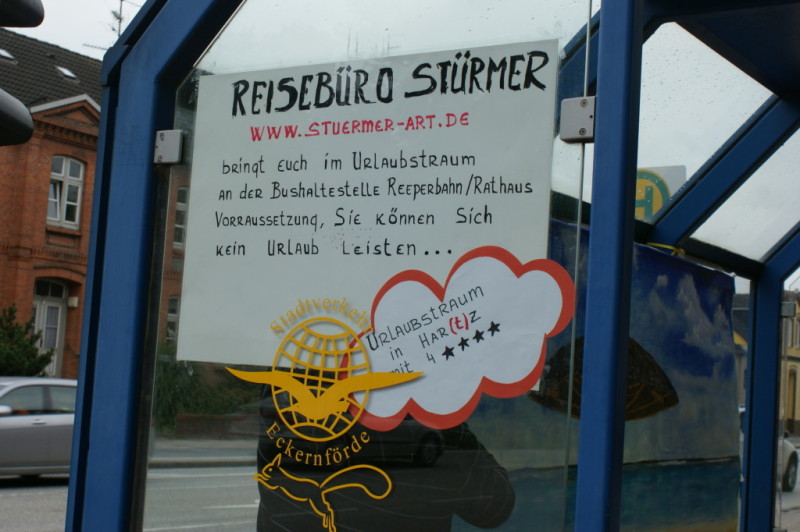 REISEBÜRO STÜRMER
WWW.STUERMER-ART.DE
bringt euch im Urlaubstraum
an der Bushaltestelle Reeperbahn/Rathaus
Vorraussetzung, Sie können Sich
kein Urlaub leisten...
Urlaubstraum
in Har(t)z
mit 4 ★★★★
Stadtverkehr
Eckernförde
H